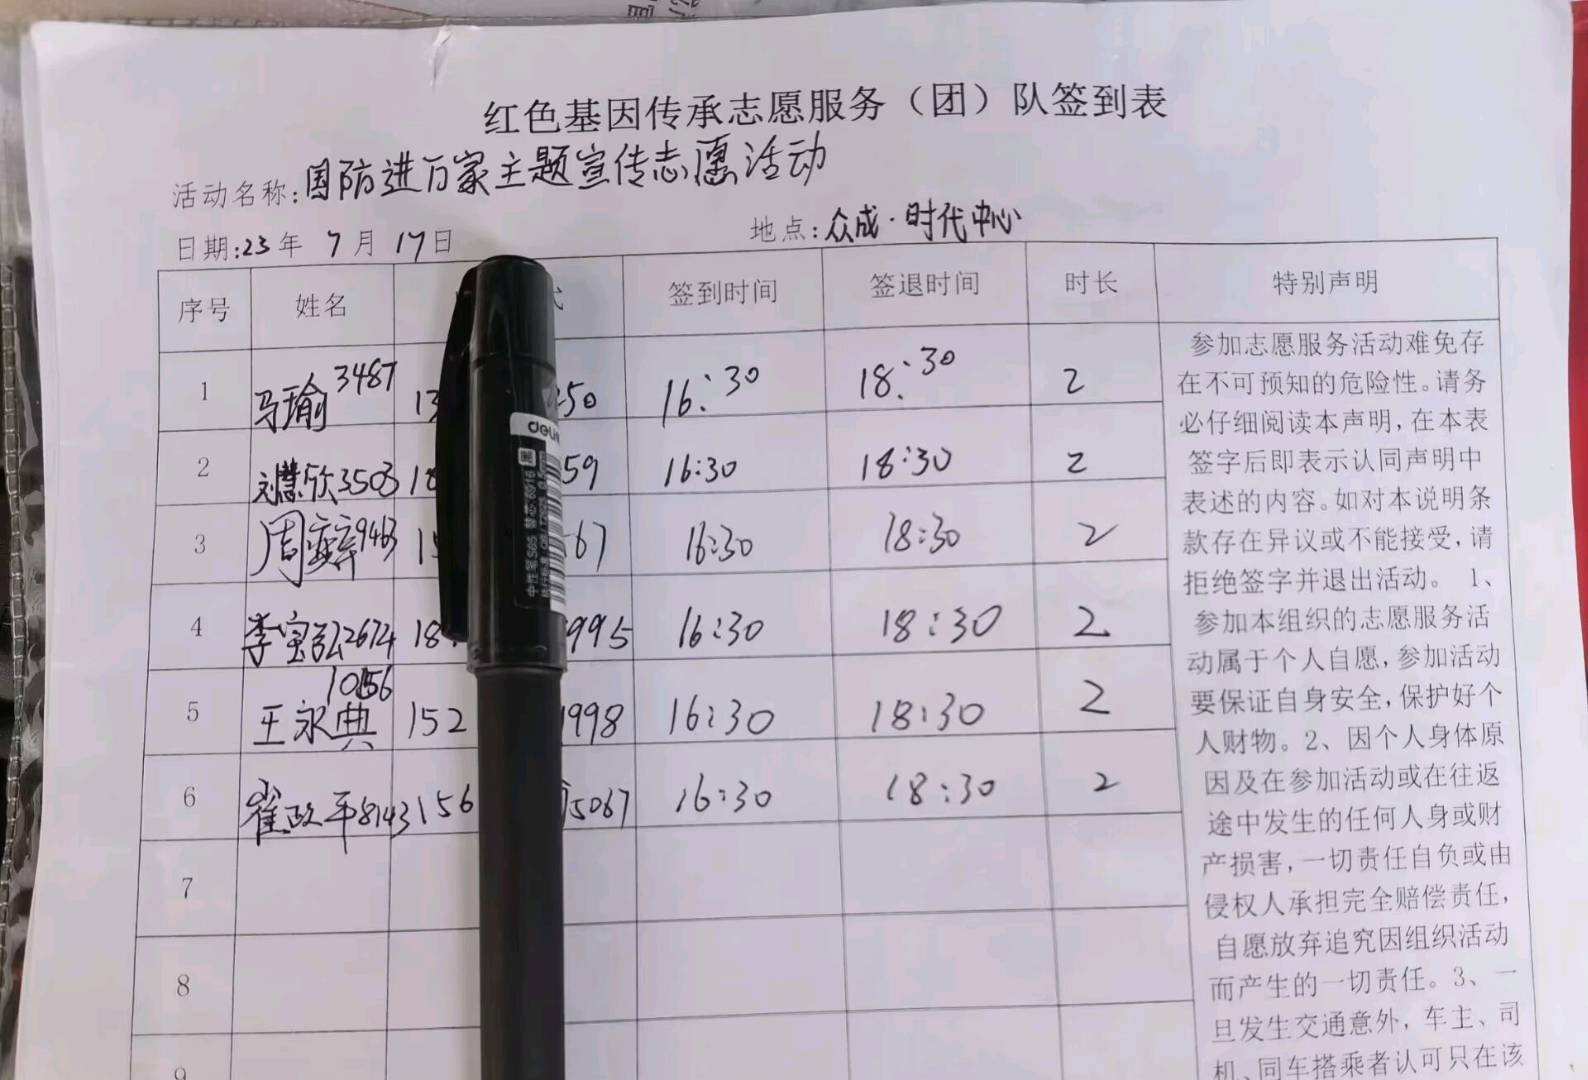 红色基因传承志愿服务（团）队签到表
活动名称:国防进万家主题宣传志愿活动
日期:23年 7月 17日 地点:众成·时代中心
序号 姓名 签到时间 签退时间 时长 特别声明
1 马瑜3487 13 250 16:30 18:30 2
2 刘慧欣3503 18 59 16:30 18:30 2
3 周 9463 15 67 16:30 18:30 2
4 李宝弘2674 18 995 16:30 18:30 2
5 王永典10156 152 1998 16:30 18:30 2
6 崔政平8143 156 5067 16:30 18:30 2
7
8
9
参加志愿服务活动难免存
在不可预知的危险性。请务
必仔细阅读本声明,在本表
签字后即表示认同声明中
表述的内容。如对本说明条
款存在异议或不能接受,请
拒绝签字并退出活动。 1、
参加本组织的志愿服务活
动属于个人自愿,参加活动
要保证自身安全,保护好个
人财物。2、因个人身体原
因及在参加活动或在往返
途中发生的任何人身或财
产损害,一切责任自负或由
侵权人承担完全赔偿责任,
自愿放弃追究因组织活动
而产生的一切责任。3、一
旦发生交通意外,车主、司
机、同车搭乘者认可只在该
deli